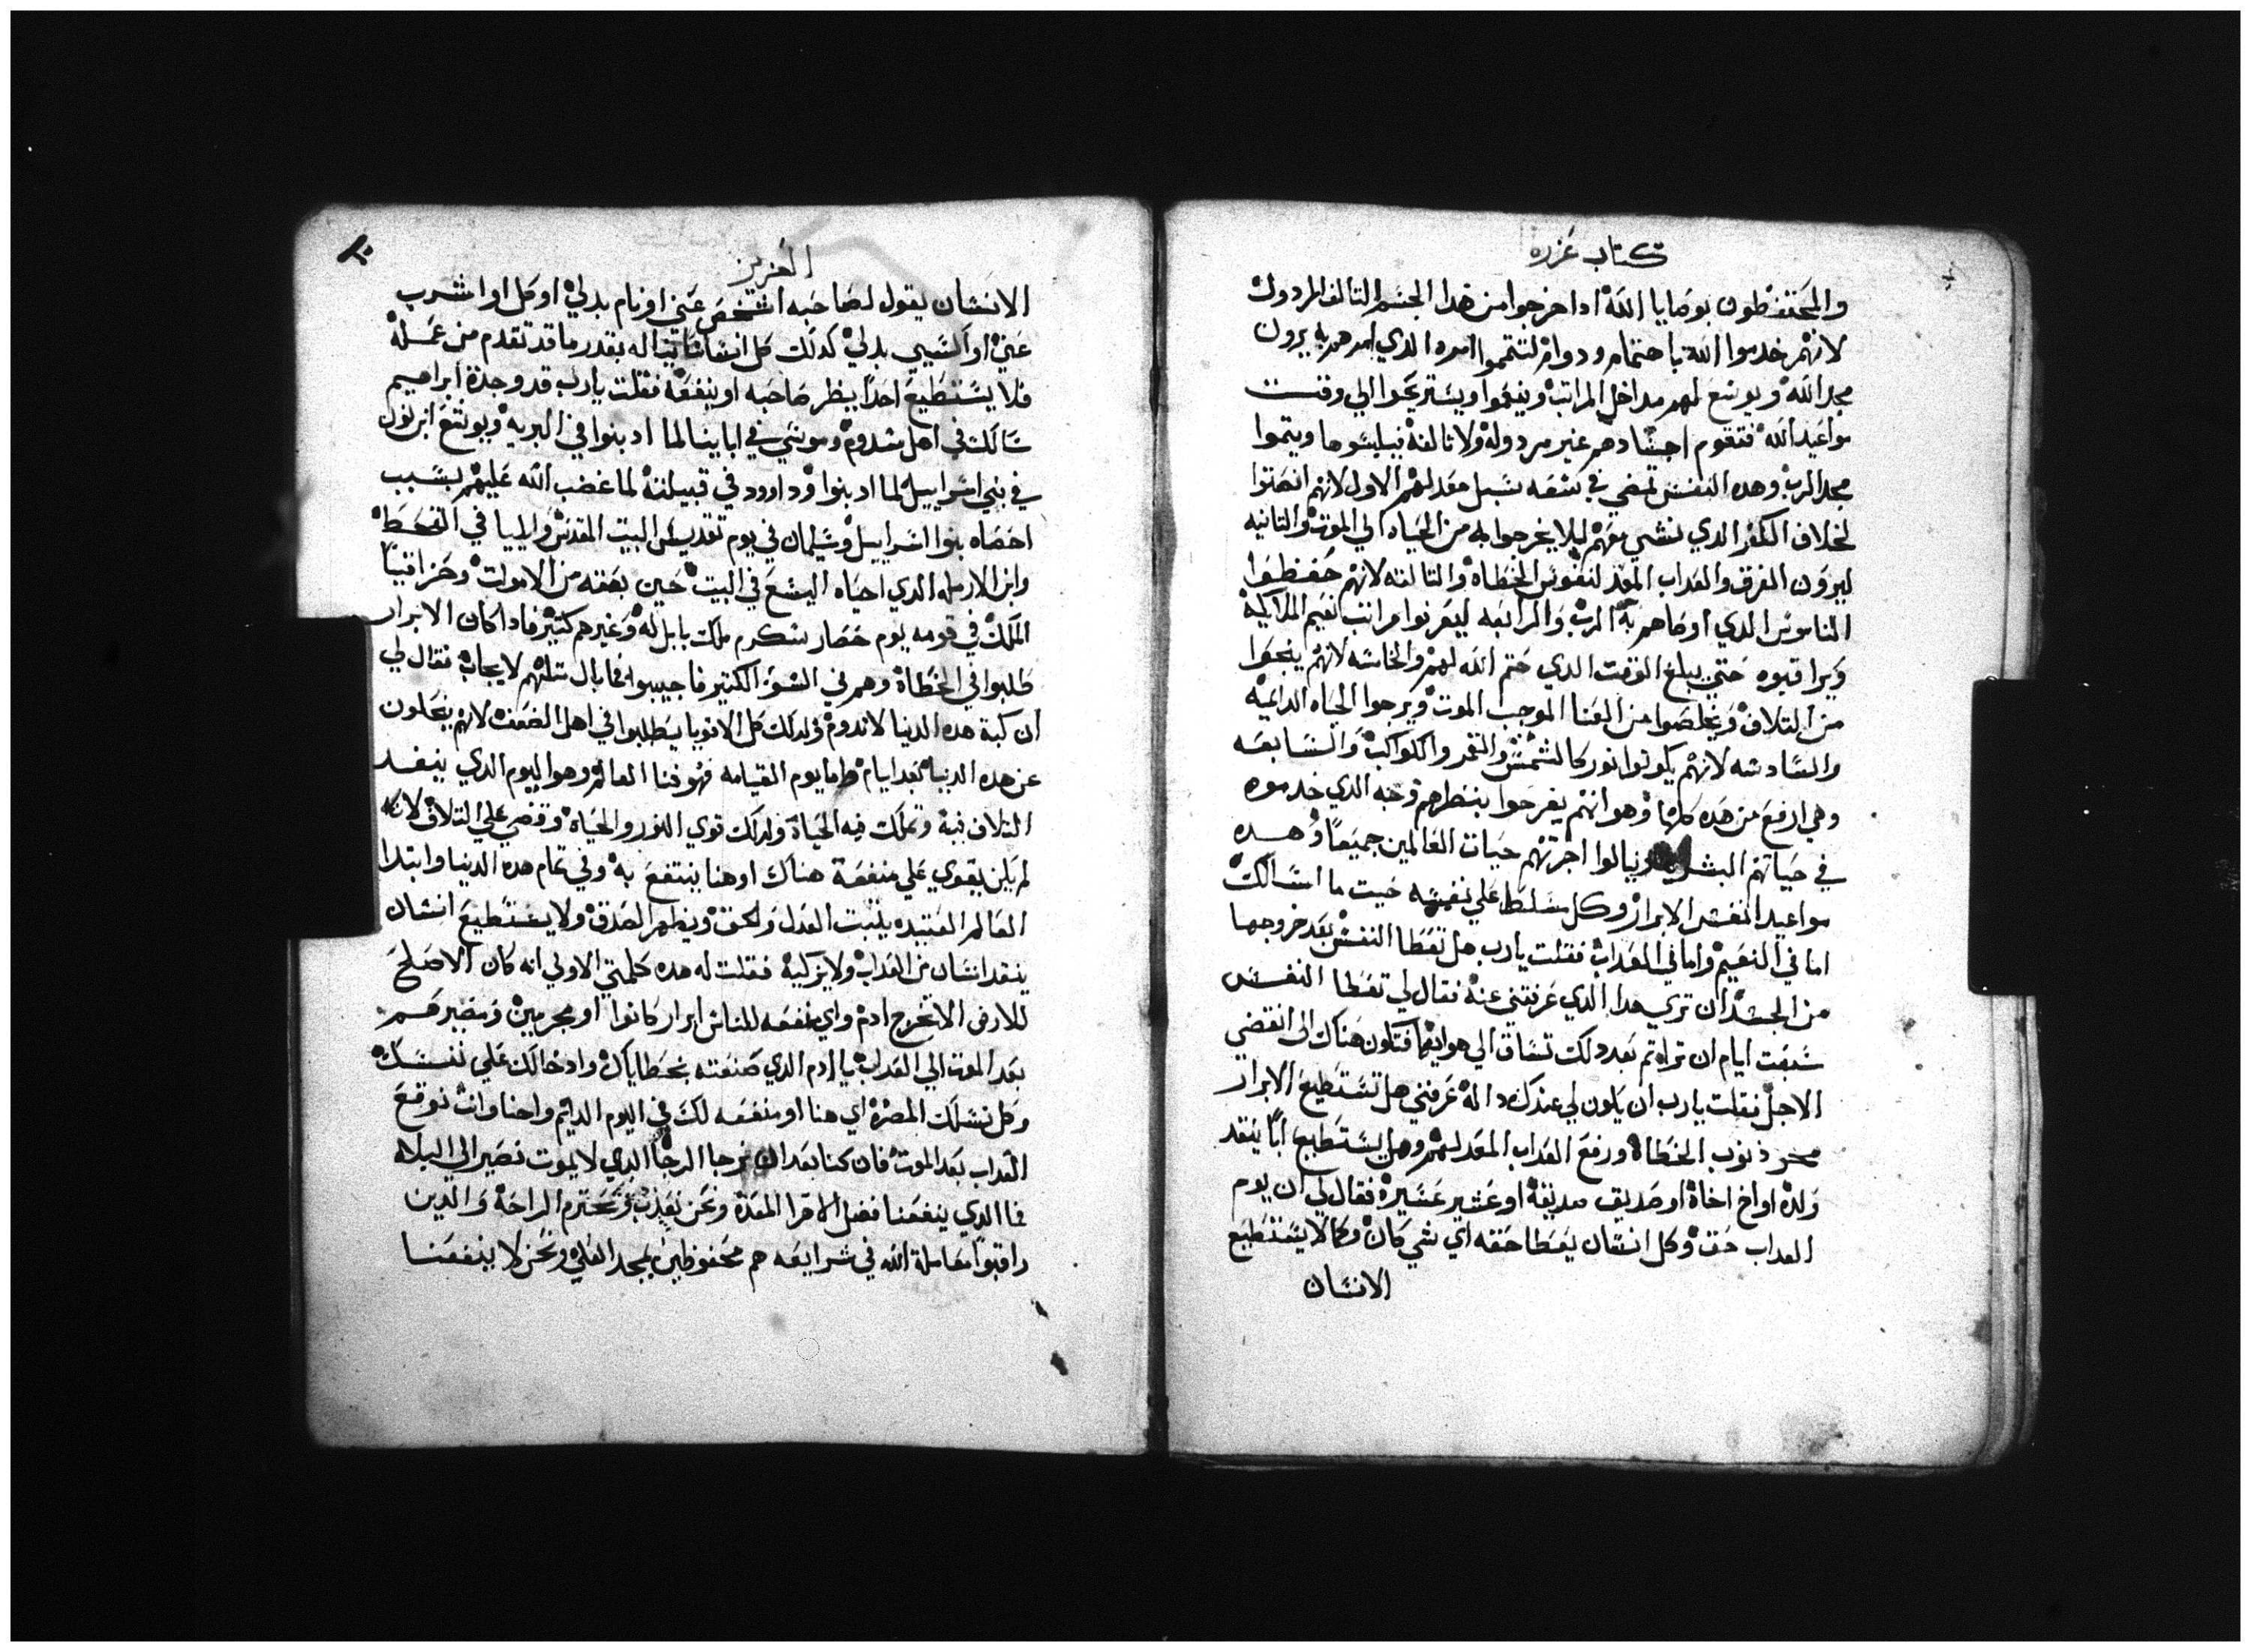 كتاب عزره
والمحتفظون بوصايا الله ادا خرجوا من هدا الجسم التالف المردول
لانهم خدموا الله باهتمام ودوام لتتمموا امره الدي امرهم به يرون
مجد الله ويوسع لهم مداخل المراتب وينعموا ويستريحوا الي وقت
مواعيد الله فتقوم اجسادهم غير مردوله ولا تالفه فيلبسوها ويتموا
مجد الرب وهده النفس تمضي في سبعه سبل معد لهم الاول لانهم انصتوا
لخلاف الكفر الدي نشي معهم ليلا يخرجوا به من الحياه الي الموت والتانيه
ليرون الفرق والعداب المعد لنفوس الخطاه والتالته لانهم حفظوا
الناموس الدي اوصاهم به الرب والرابعه ليعرفوا مراتب نعيم الملايكه
ويراقبوه حتي يبلغ الوقت الدي ختم الله لهم والخامسه لانهم ينجوا
من التلاف ويخلصوا من الفنا الموجب الموت ويرجوا الحياه الدايمه
والسادسه لانهم يكونوا نور كالشمس والقمر والكواكب والسابعه
وهي ارفع من هده كلها وهو انهم يفرحوا بنظرهم وجه الدي خدموه
في حياتهم البشريه وينالوا اجرتهم حيات العالمين جميعا وهده
مواعيد النفس الابرار وكل سلط علي نفسه حيت ما اسالك
اما في النعيم واما في العداب فقلت يارب هل تعطا النفس بعد خروجها
من الجسد ان تري هدا الدي عرفتني عنه فقال لي تعطا النفس
سبعت ايام ان تراه تم بعد دلك تساق الي هوايها فتكون هناك الي انقضي
الاجل فقلت يارب ان يكون لي عندك داله عرفني هل تستطيع الابرار
محو ذنوب الخطاه ورفع العداب المعد لهم وهل يستطيع ابا ينقد
ولده او اخ اخاه او صديق صديقه او عشير عشيره فقال لي ان يوم
العداب حق وكل انسان يعطا حقه اي شي كان وكما لا يستطيع
الانسان
العزيز
الانسان يقول لصاحبه اشخص عني او نام بدلي او كل او اشرب
عني او السيي بدلي كدلك كل انسان يناله بقدر ما قد تقدم من عمله
فلا يستطيع احدا ينظر صاحبه او ينفعه فقلت يارب قد وجدة ابراهيم
سالك في اهل سدوم وموسي في ابايينا لما ادنبوا في البريه ويوشع ابن نون
في بني اسراييل لما ادنبوا وداوود في قبيلته لما غضب الله عليهم بسبب
احصاه بنوا اسراييل وسليمان في يوم تقديس البيت المقدس وايليا في القحط
وابن الارمله الدي احياه اليشع في البيت حين بعته من الاموات وحزاقيا
الملك في قومه يوم حصار سنكرم ملك بابل له وغيرهم كتير فادا كان الابرار
طلبوا في الخطاة وهم في السؤ الكتير فاجيبوا فما بال متلهم لا يجاب فقال لي
ان كبة هده الدنيا لا تدوم ولدلك كل الاقويا يطلبوا في اهل الضعف لانهم ينحلون
عن هده الدنيا بعد ايام واما يوم القيامه فهو فنا العالم وهو اليوم الدي ينفد
التلاف فيه وتملك فيه الحياة ولدلك قوي النور والحياه وقضي علي التلاف لانه
لم يكن يقوي علي منفعة هناك او هنا ينتفع به وفي تمام هده الدنيا وابتدا
العالم العتيده يتبت العدل والحق ويظهر الصدق ولا يستطيع انسان
ينقد انسان من العداب ولا يزكيه فقلت له هده كلمتي الاولي انه كان الاصلح
للارض الا تخرج ادم واي منفعه للناس ابرار كانوا او مجرمين ومصيرهم
بعد الموت الي العداب يا ادم الدي صنعته بخطاياك وادخالك علي نفسك
وكل نسلك المضره اي هنا او منفعه لك في اليوم الدايم واحنا وانت نوقع
العداب بعد الموت فان كنا بعد ان نرجا الرجا الدي لا يموت نصير الي البلاه
فما الدي ينفعنا فضل الاخرا المعدة ونحن نعذب ونحترم الراحة والدين
راقبوا معاملة الله في شرايعه هم محفوظين بمجد العلي ونحن لا ينفعنا